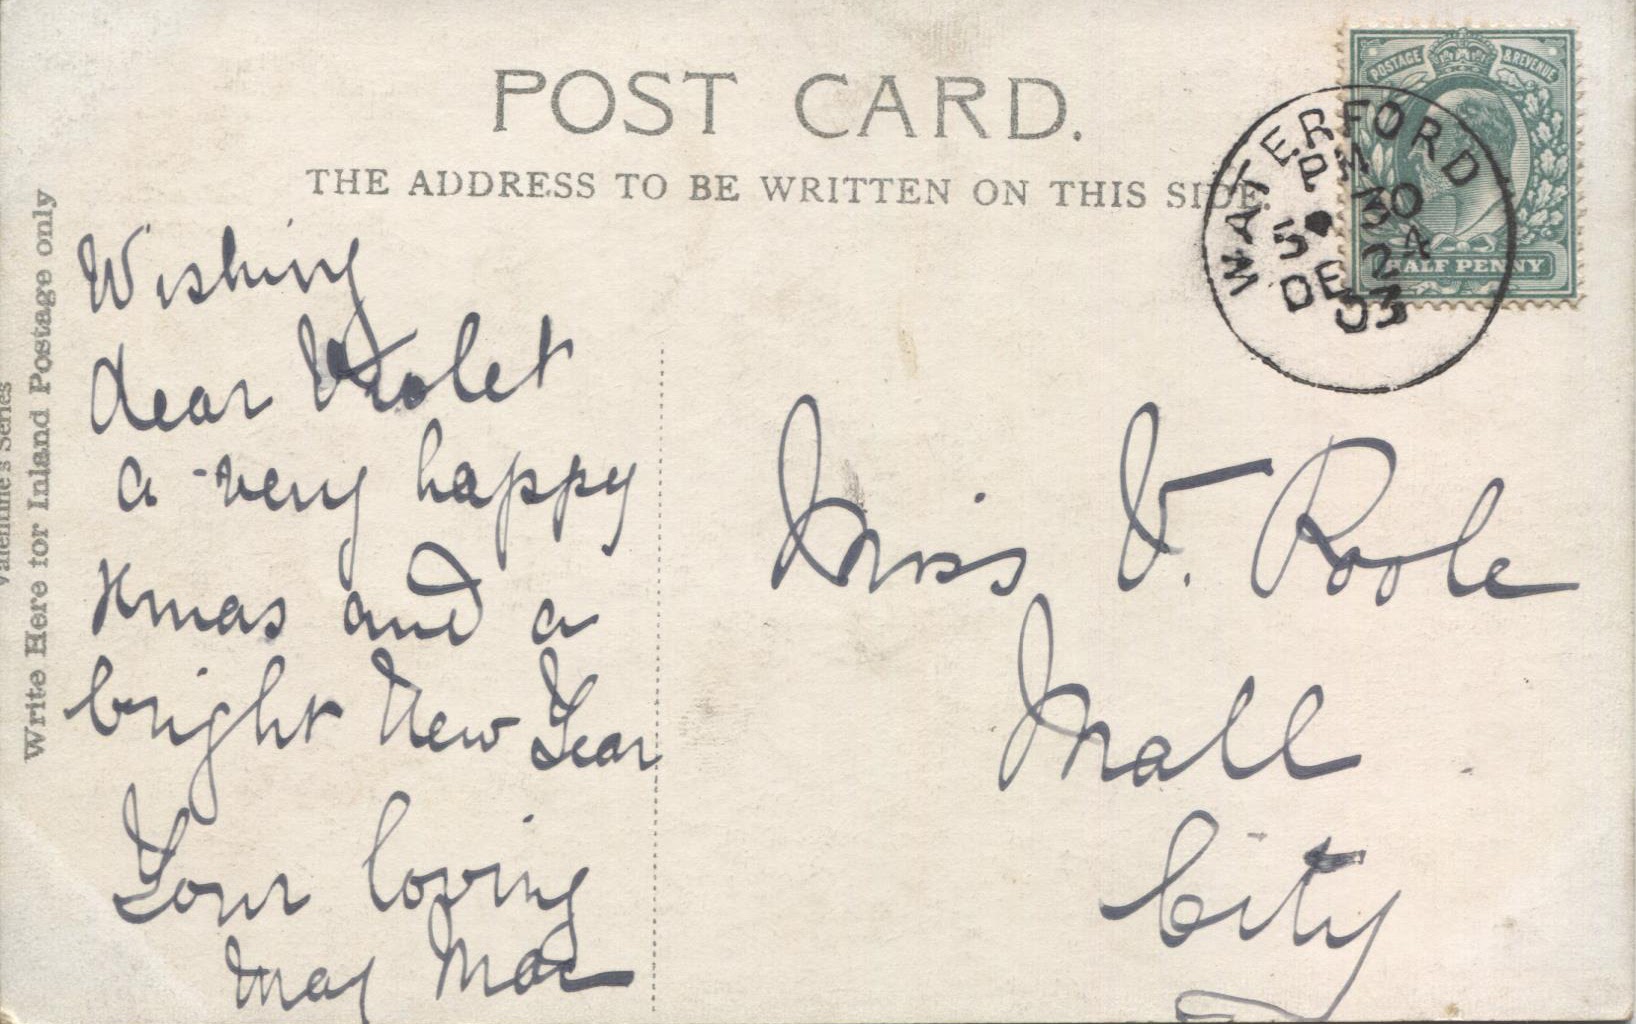 POST CARD.
THE ADDRESS TO BE WRITTEN ON THIS SIDE.
Valentine's Series
Write Here for Inland Postage only
POSTAGE & REVENUE
HALF PENNY
WATERFORD
DE 23
03
Wishing
dear Violet
a very happy
Xmas and a
bright New Year
Your loving
May Mac
Miss V. Poole
Mall
City